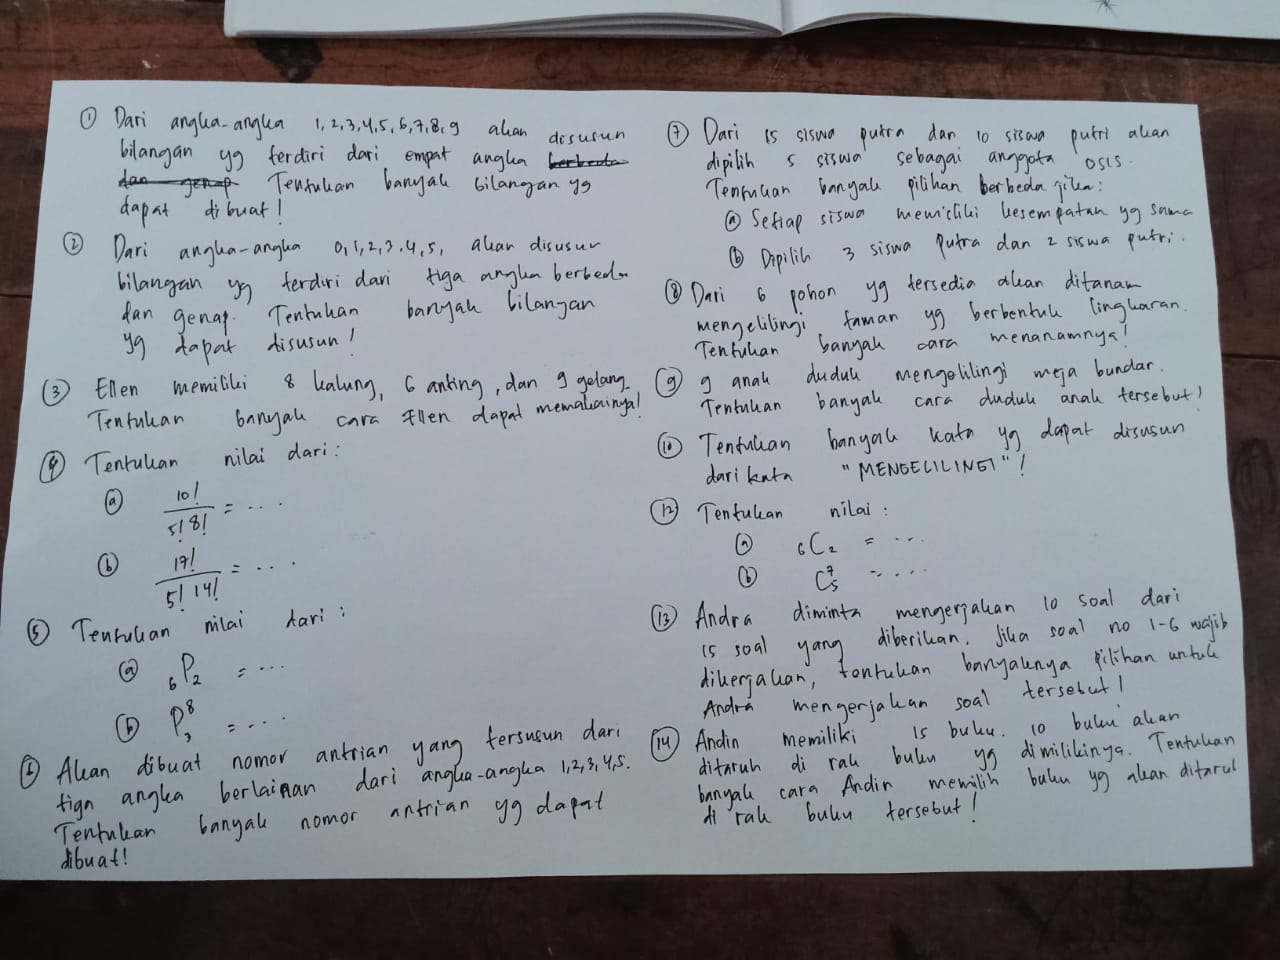 ① Dari angka-angka 1,2,3,4,5,6,7,8,9 akan disusun
bilangan yg terdiri dari empat angka
Tentukan banyak bilangan yg
dapat dibuat!
② Dari angka-angka 0,1,2,3,4,5, akan disusun
bilangan yg terdiri dari tiga angka berbeda
dan genap. Tentukan banyak bilangan
yg dapat disusun!
③ Ellen memiliki 8 kalung, 6 anting, dan 9 gelang.
Tentukan banyak cara Ellen dapat memakainya!
④ Tentukan nilai dari:
ⓐ 10!/5!8! = ...
ⓑ 17!/5!14! = ...
⑤ Tentukan nilai dari:
ⓐ ₆P₂ = ...
ⓑ P⁸₃ = ...
⑥ Akan dibuat nomor antrian yang tersusun dari
tiga angka berlainan dari angka-angka 1,2,3,4,5.
Tentukan banyak nomor antrian yg dapat
dibuat!
⑦ Dari 15 siswa putra dan 10 siswa putri akan
dipilih 5 siswa sebagai anggota OSIS.
Tentukan banyak pilihan berbeda jika:
ⓐ Setiap siswa memiliki kesempatan yg sama
ⓑ Dipilih 3 siswa putra dan 2 siswa putri.
⑧ Dari 6 pohon yg tersedia akan ditanam
mengelilingi taman yg berbentuk lingkaran.
Tentukan banyak cara menanamnya!
⑨ 9 anak duduk mengelilingi meja bundar.
Tentukan banyak cara duduk anak tersebut!
⑩ Tentukan banyak kata yg dapat disusun
dari kata "MENGELILINGI"!
⑫ Tentukan nilai:
ⓐ ₆C₂ = ...
ⓑ C⁷₅ = ....
⑬ Andra diminta mengerjakan 10 soal dari
15 soal yang diberikan. Jika soal no 1-6 wajib
dikerjakan, tentukan banyaknya pilihan untuk
Andra mengerjakan soal tersebut!
⑭ Andin memiliki 15 buku. 10 buku akan
ditaruh di rak buku yg dimilikinya. Tentukan
banyak cara Andin memilih buku yg akan ditaruh
di rak buku tersebut!